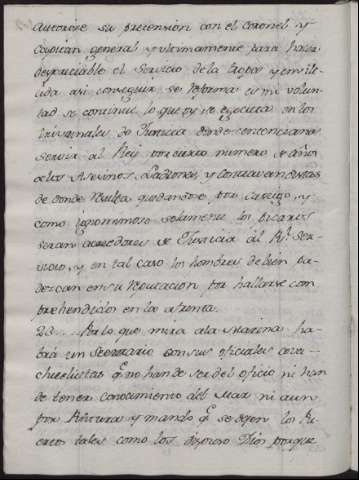 autorise su pretension con el coronel y
Capitan general y ultimamente para hacer
despreciable el Servicio de la tropa y envile-
cida asi conseguir se Reforma es mi volun-
tad se continue lo que oy se egecuta en los
trivunales de Justicia donde sentencian a
servir al Rey por cierto numero de años
a los Asesinos Ladrones, y Contravandistas
de donde Resulta quedando por castigo, y
como ignominioso solamente los picaros
seran acreedores de Justicia al Rl. Ser-
vicio, y en tal caso los hombres de bien pa-
dezcan en su Reputacion por hallarse com
prehendidos en la afrenta.
23.... Por lo que mira a la Marina ha-
brá un Secretario con sus oficiales cova-
chuelistas qe. no han de ser del oficio ni han
de tener conocimiento del Mar ni aun
por Pintura y mando qe. se dejen los Pu-
ertos tales como los dispuso Dios porque